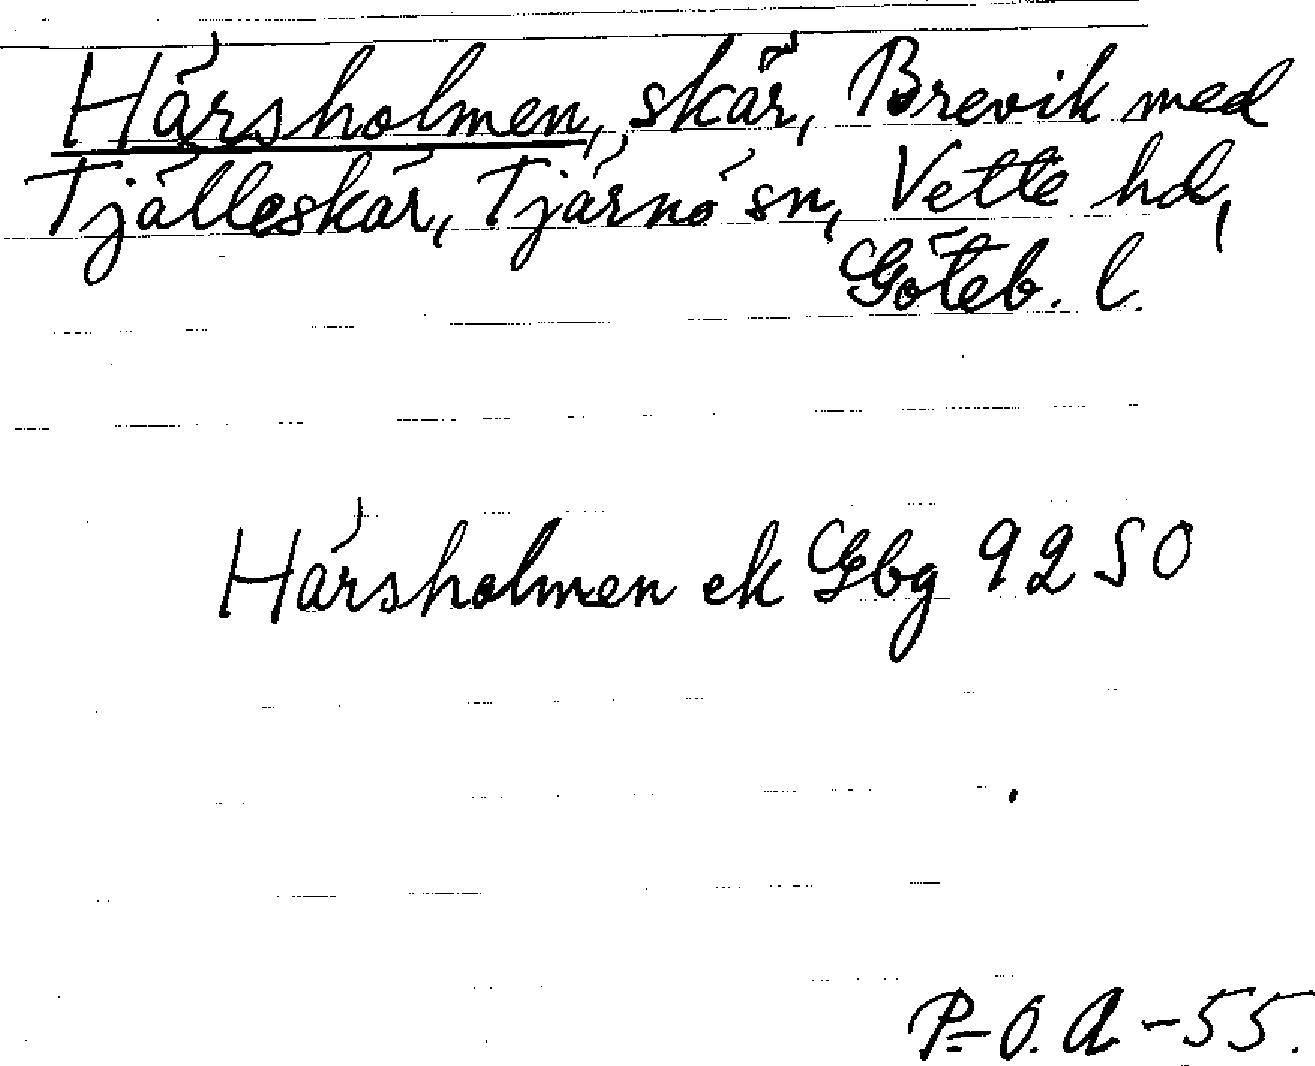 Härsholmen, skär, Brevik med
Tjälleskär, Tjärnö sn, Vette hd,
Göteb. l.
Härsholmen ek Gbg 9250
P-O. A -55.